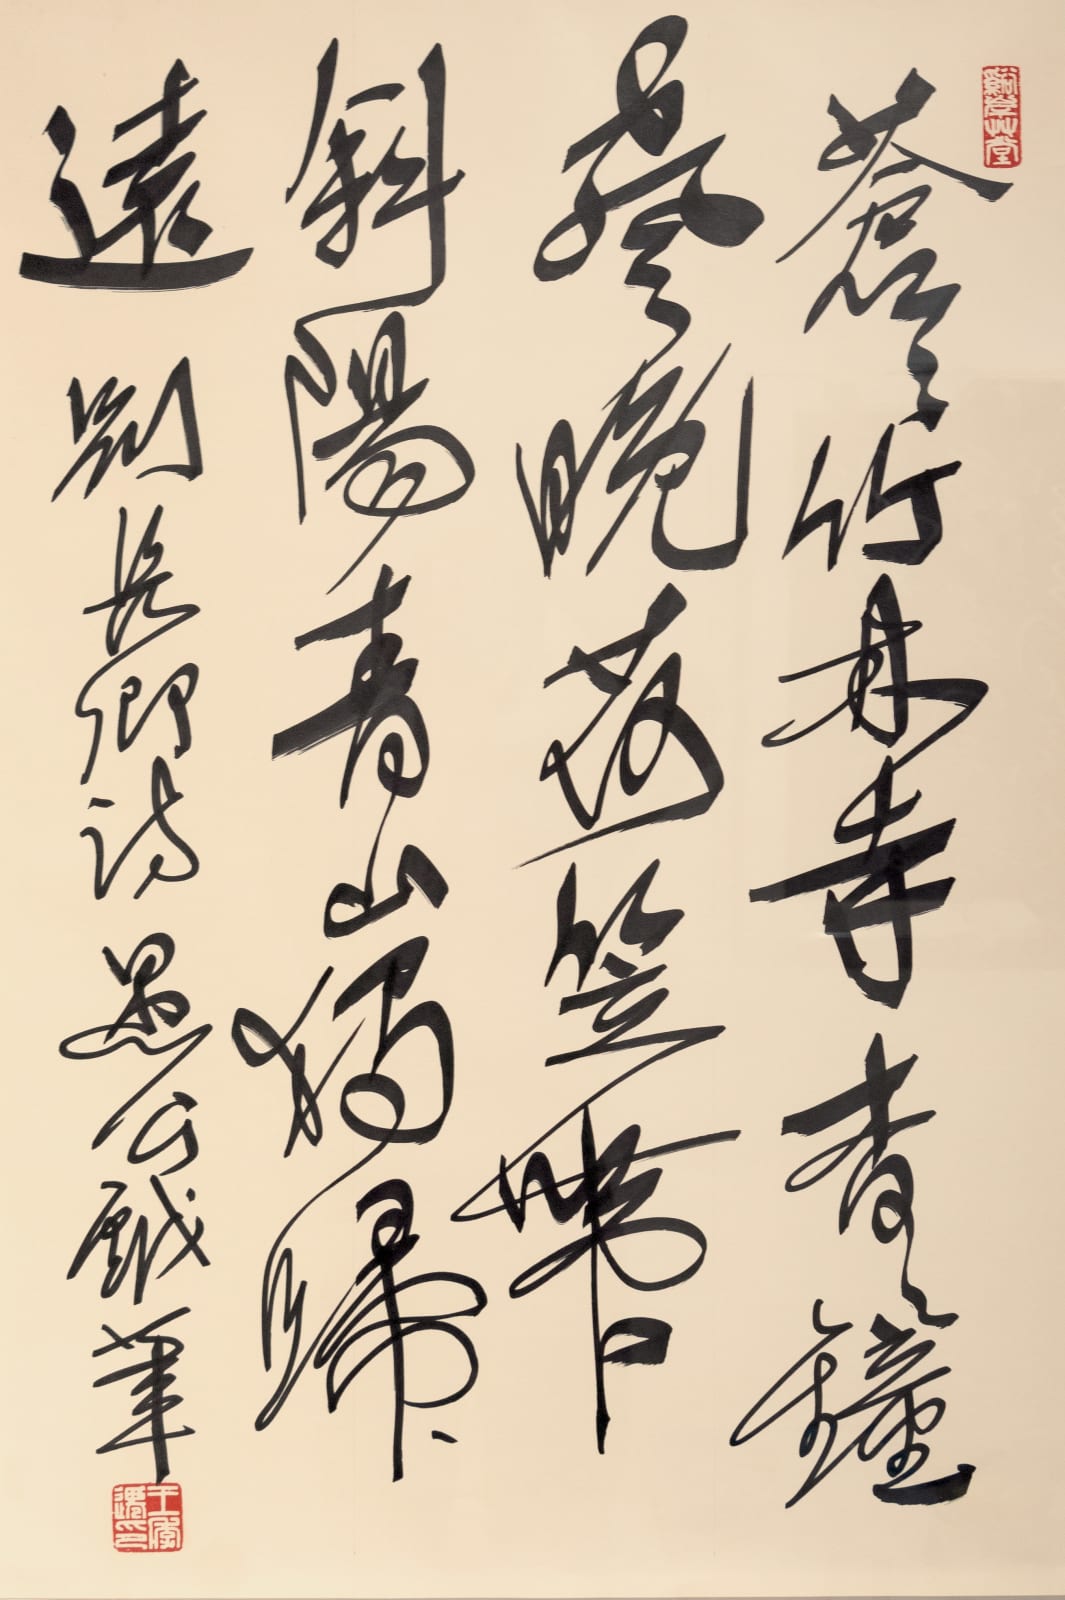 蒼々竹林寺杳々鐘
聲晚荷笠帶
斜陽青山獨歸
遠 劉長卿詩 愚公戲筆